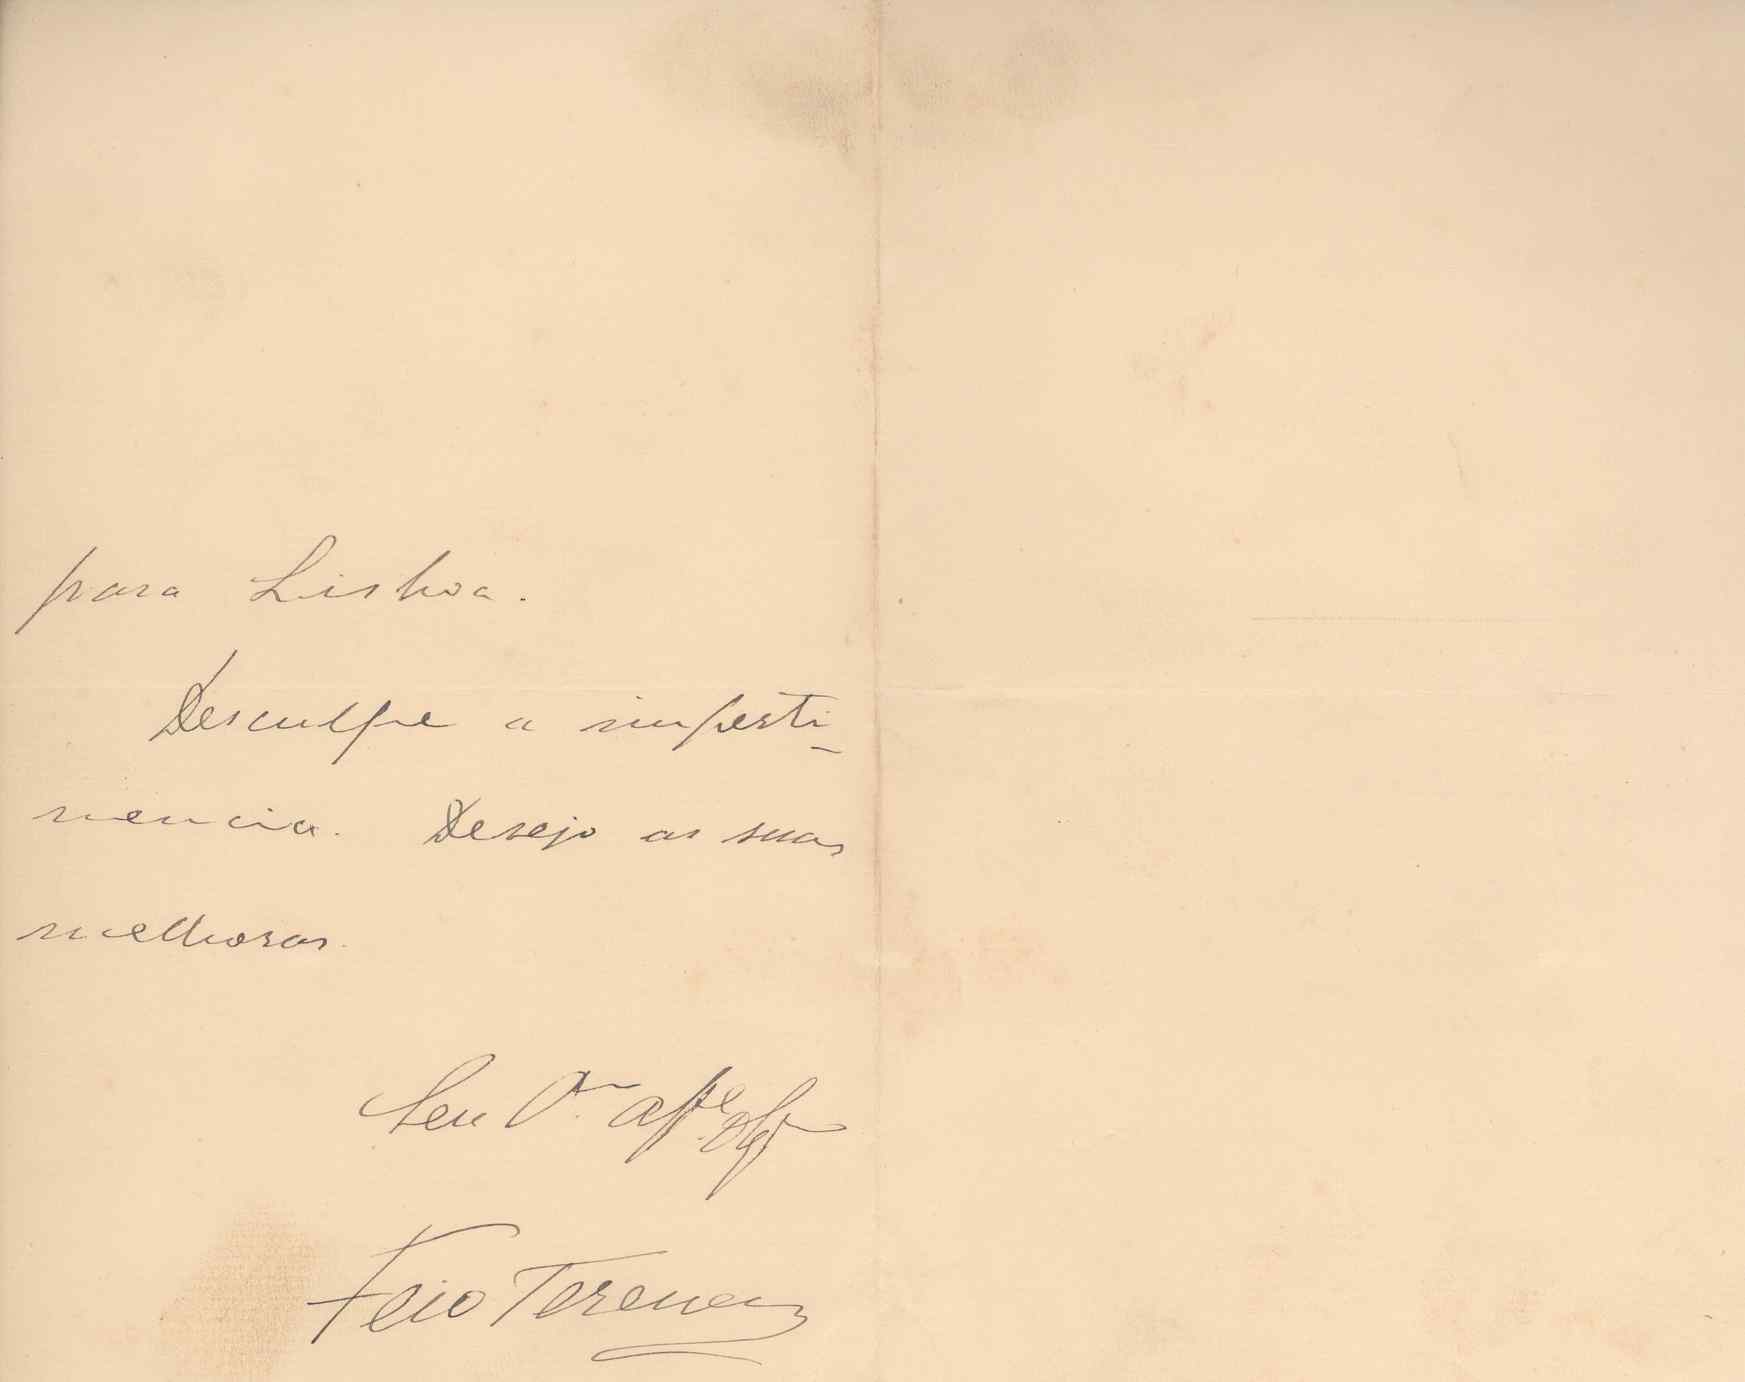 para Lisboa.
Desculpe a imperti-
nencia. Desejo as suas
melhoras.
Seu
Feio Terenas